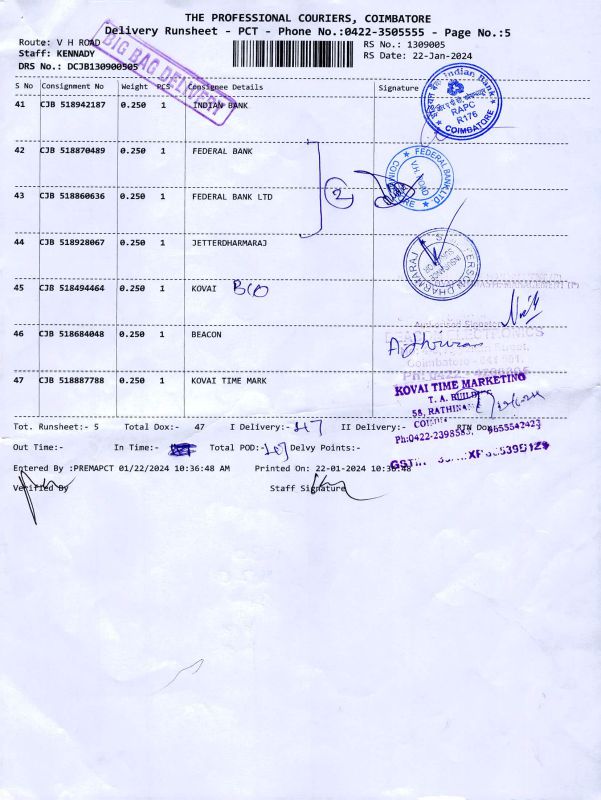 THE PROFESSIONAL COURIERS, COIMBATORE
Delivery Runsheet - PCT - Phone No.:0422-3505555 - Page No.:5
Route: V H ROAD
RS No.: 1309005
Staff: KENNADY
RS Date: 22-Jan-2024
DRS No.: DCJB130900505
BIG BAG DELIVERY
S No Consignment No Weight PCS Consignee Details Signature
41 CJB 518942187 0.250 1 INDIAN BANK
Indian Bank
RAPC
R176
COIMBATORE
42 CJB 518870489 0.250 1 FEDERAL BANK
2
FEDERAL BANK LTD
V.H. ROAD
43 CJB 518860636 0.250 1 FEDERAL BANK LTD
44 CJB 518928067 0.250 1 JETTERDHARMARAJ
DHARMARAJ
45 CJB 518494464 0.250 1 KOVAI
46 CJB 518684048 0.250 1 BEACON
47 CJB 518887788 0.250 1 KOVAI TIME MARK
KOVAI TIME MARKETING
T. A. BUILDING
58, RATHINA
Ph:0422-2398583, 9655542423
Tot. Runsheet:- 5 Total Dox:- 47 I Delivery:- 47 II Delivery:- RTN Dox
Out Time:- In Time:- Total POD:- 47 Delvy Points:-
GSTIN
Entered By :PREMAPCT 01/22/2024 10:36:48 AM Printed On: 22-01-2024 10:36:48
Verified By Staff Signature